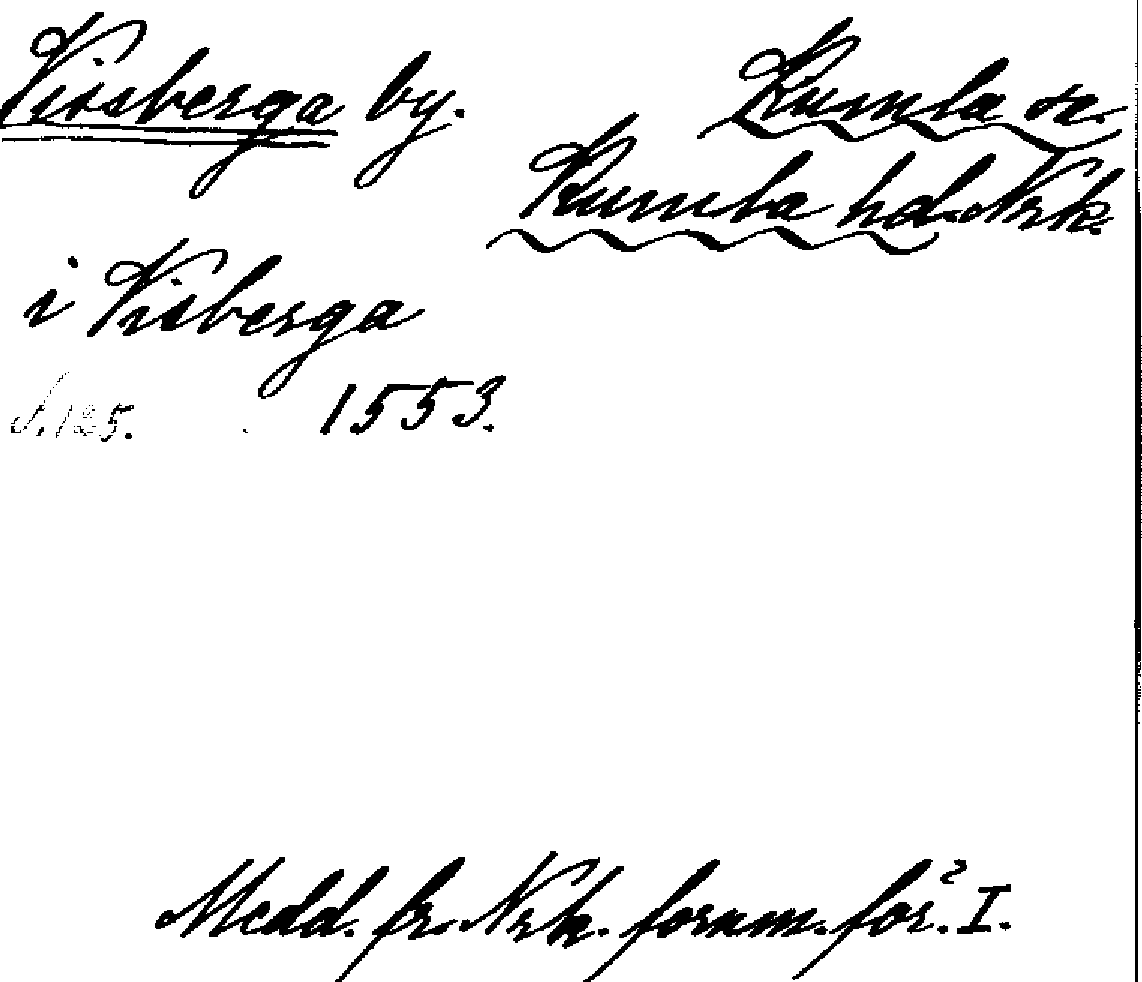 Vissberga by. Kumla sn.
Kumla hd. Nrk.
i Visberga
S. 125. 1553.
Medd. fr. Nrk. fornm. för. I.